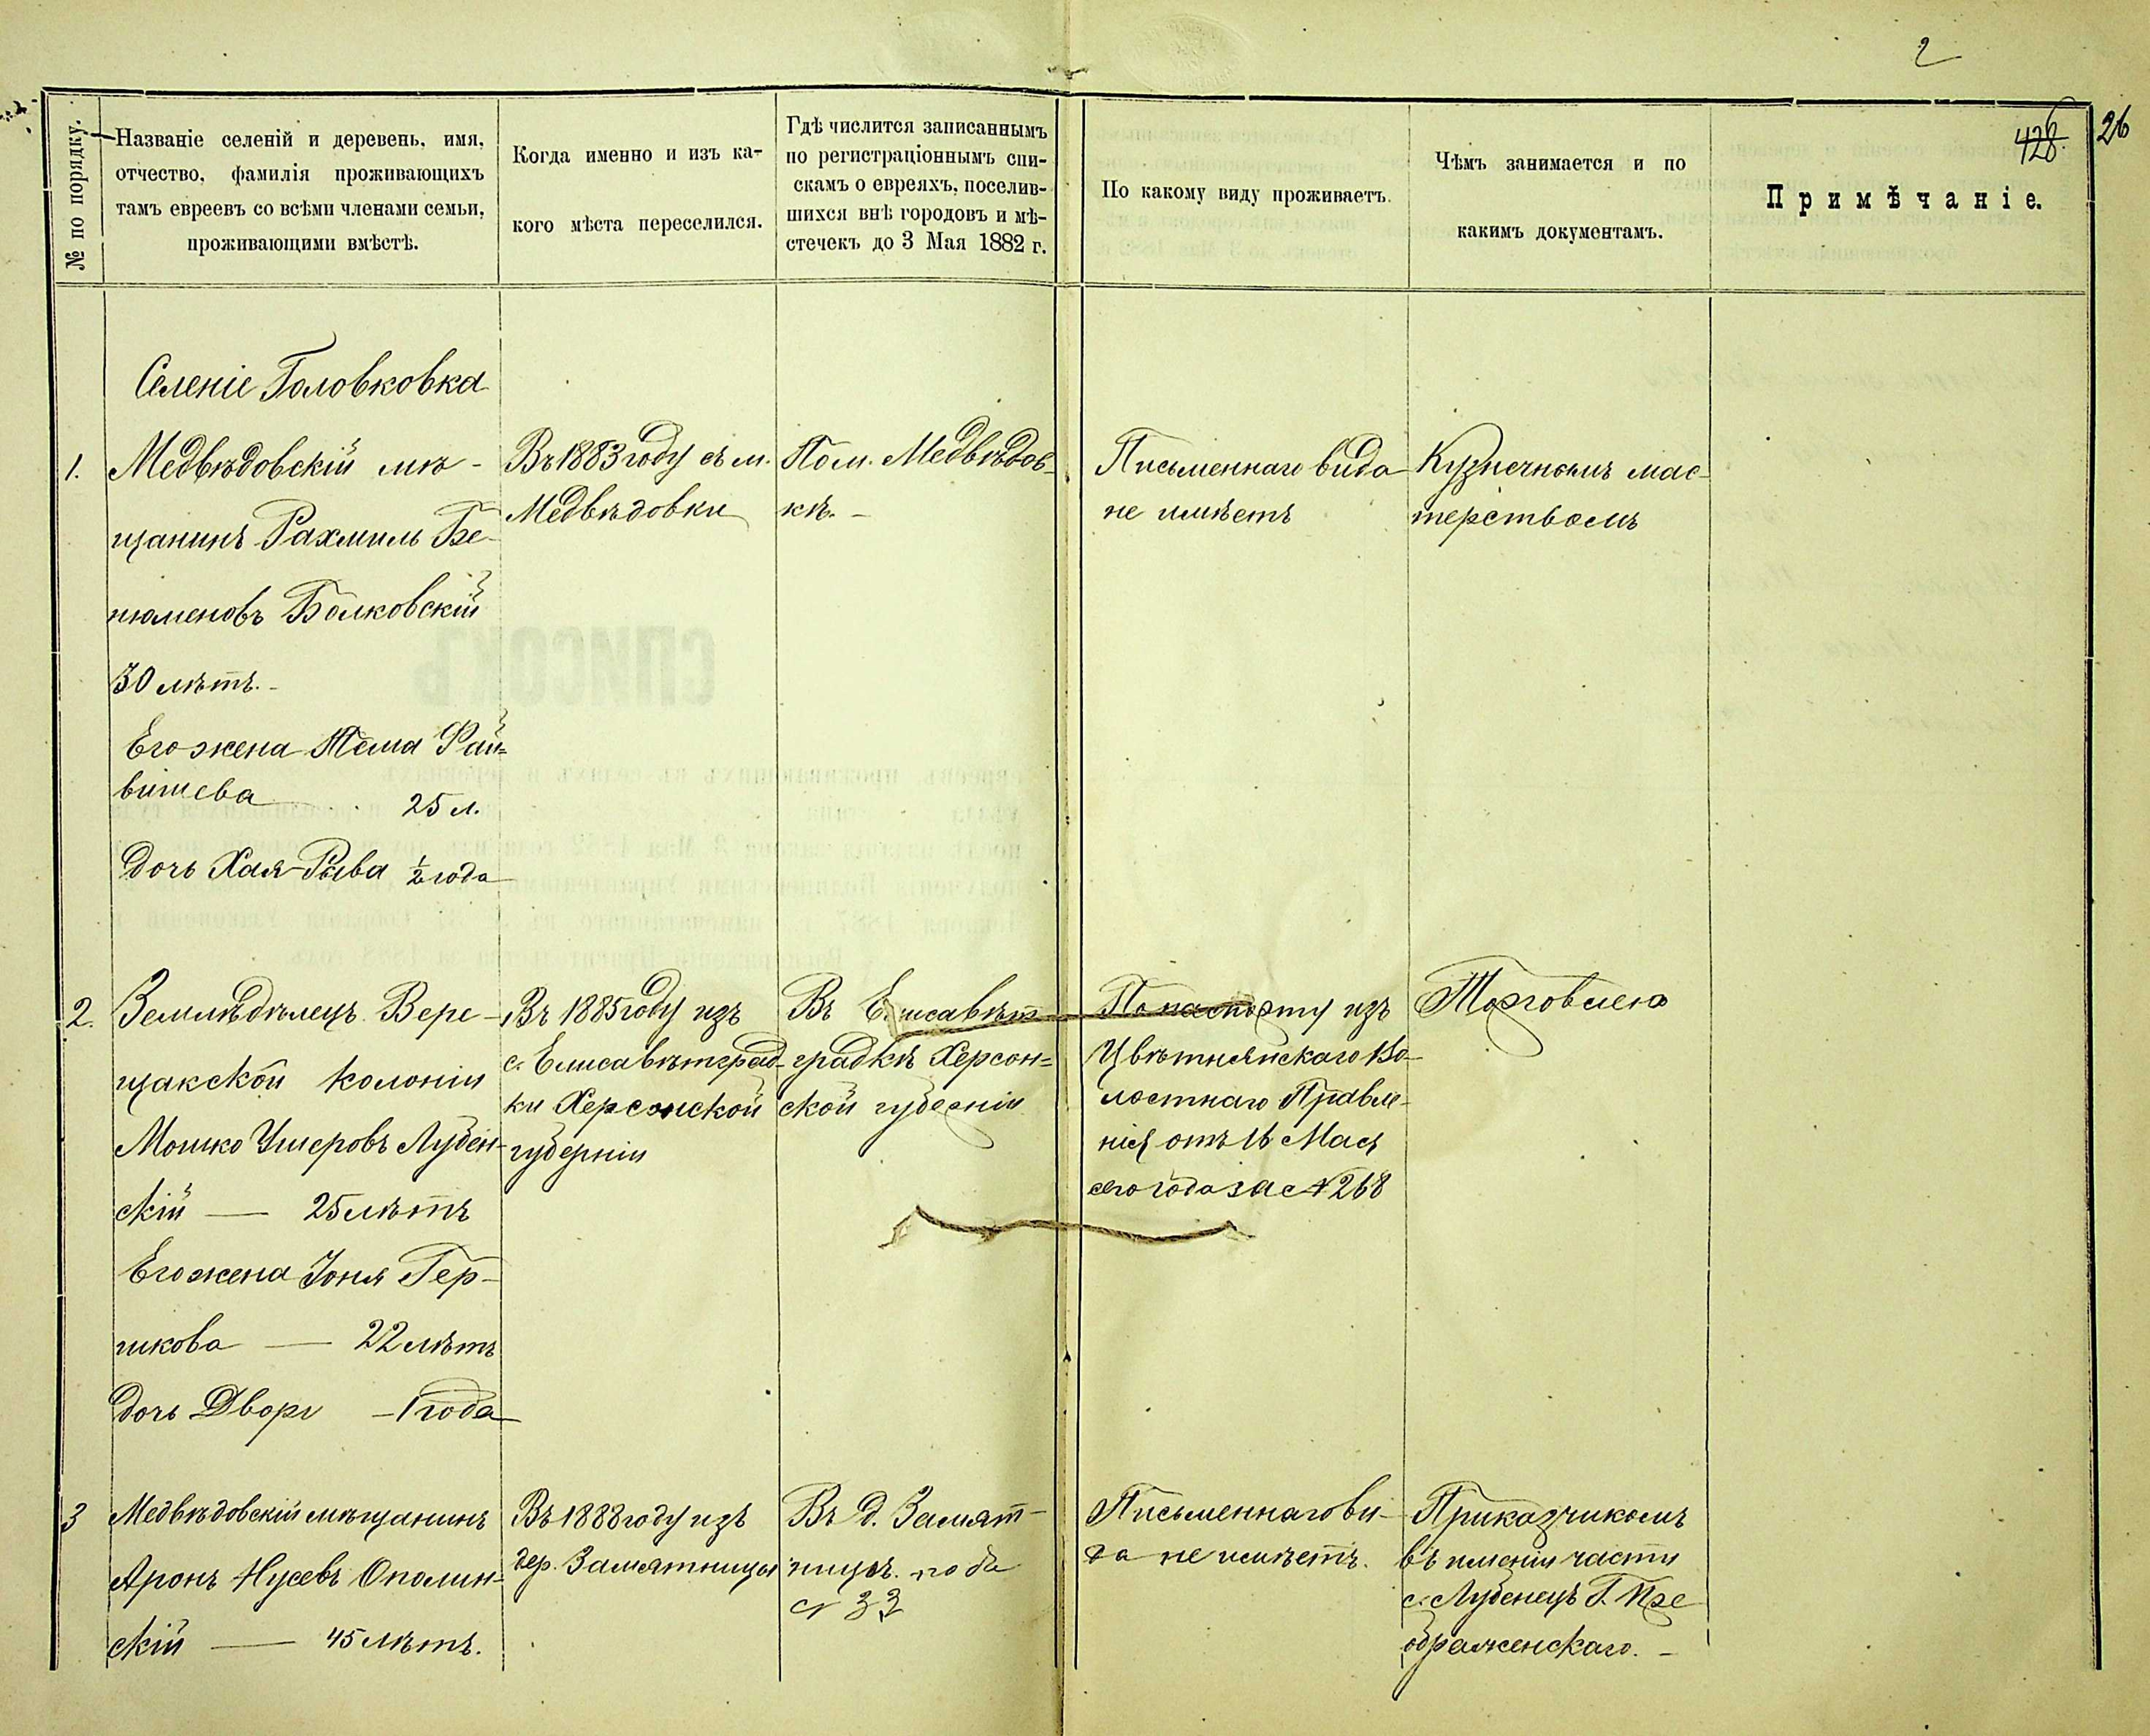 2
428
26
№ по порядку.
Названіе селеній и деревень, имя,
отчество, фамилія проживающихъ
тамъ евреевъ со всѣми членами семьи,
проживающими вмѣстѣ.
Когда именно и изъ ка-
кого мѣста переселился.
Гдѣ числится записаннымъ
по регистраціоннымъ спи-
скамъ о евреяхъ, поселив-
шихся внѣ городовъ и мѣ-
стечекъ до 3 Мая 1882 г.
По какому виду проживаетъ.
Чѣмъ занимается и по
какимъ документамъ.
Примѣчаніе.
Селеніе Головковка
1.
Медвѣдовскій мѣ-
щанинъ Рахмиль Бе-
нюменовъ Болковскій
30 лѣтъ.-
Его жена Тема Фай=
вишева 25 л.
дочь Хая-Рыва ½ года
Въ 1883 году съ м.
Медвѣдовки
По м. Медвѣдов-
кѣ.-
Письменнаго вида
не имѣетъ
Кузнечнымъ мас-
терствомъ
2.
Земледѣлецъ Вере-
щакской колоніи
Мошко Ушеровъ Лубен-
скій — 25 лѣтъ
Его жена Гер-
шкова — 22 лѣтъ
дочь Двора - 1 года
Въ 1885 году изъ
с. Елисаветград-
ки Херсонской
губерніи
Въ Елисавет-
градкѣ Херсон=
ской губерніи
По паспорту изъ
Цвѣтнянскаго Во-
лостнаго Правле-
нія отъ 16 Мая
сего года за № 268
Торговлею
3
Медвѣдовскій мѣщанинъ
Аронъ Нусевъ Ополин-
скій — 45 лѣтъ.
Въ 1888 году изъ
дер. Замятницы
Въ д. Замят-
ницѣ. подъ
№ 33
Письменнаго ви-
да не имѣетъ.
Приказчикомъ
въ имѣніи части
с. Лубенецъ Г. Пре
ображенскаго.-